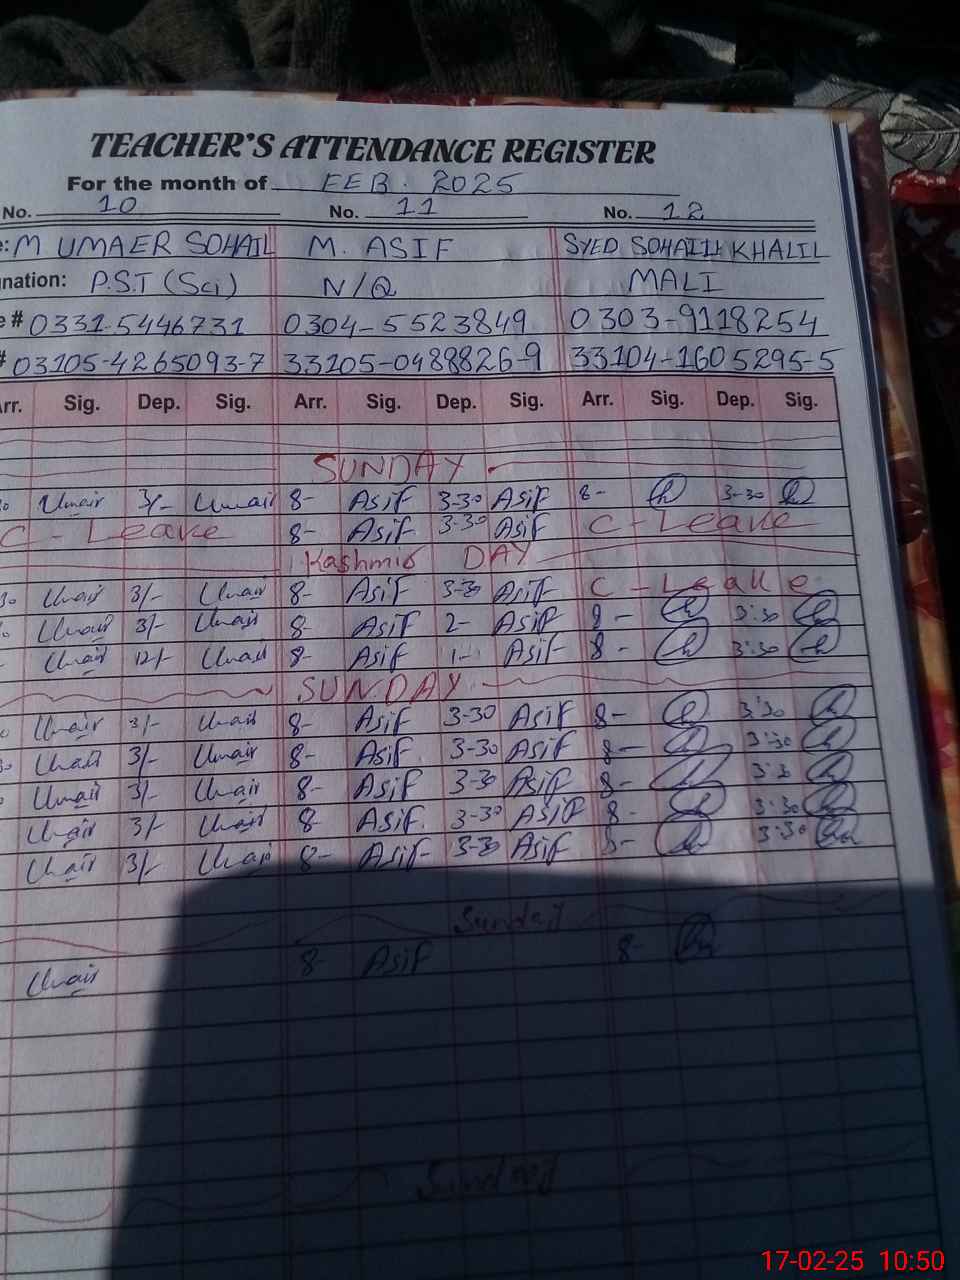 TEACHER'S ATTENDANCE REGISTER
For the month of FEB. 2025
No. 10 No. 11 No. 12
e: M UMAER SOHAIL M. ASIF SYED SOHAIL KHALIL
nation: P.S.T (Sci) N/Q MALI
e # 0331-5446731 0304-5523849 0303-9118254
# 03105-4265093-7 33105-0488826-9 33104-1605295-5
Arr. Sig. Dep. Sig. Arr. Sig. Dep. Sig. Arr. Sig. Dep. Sig.
SUNDAY
30 Umair 3/- Umair 8- Asif 3-30 Asif 8- 3-30
C - Leave 8- Asif 3-30 Asif C - Leave
Kashmir DAY
30 Umair 3/- Umair 8- Asif 3-30 Asif C - Leave
Umair 3/- Umair 8- Asif 2- Asif 8- 3:30
Umair 12/- Umair 8- Asif 1- Asif 8- 3:30
SUNDAY
Umair 3/- Umair 8- Asif 3-30 Asif 8- 3:30
30 Umair 3/- Umair 8- Asif 3-30 Asif 8- 3:30
Umair 3/- Umair 8- Asif 3-30 Asif 8- 3:30
Umair 3/- Umair 8- Asif 3-30 Asif 8- 3:30
Umair 3/- Umair 8- Asif 3-30 Asif 8- 3:30
Sunday
Umair 8- Asif 8-
17-02-25 10:50